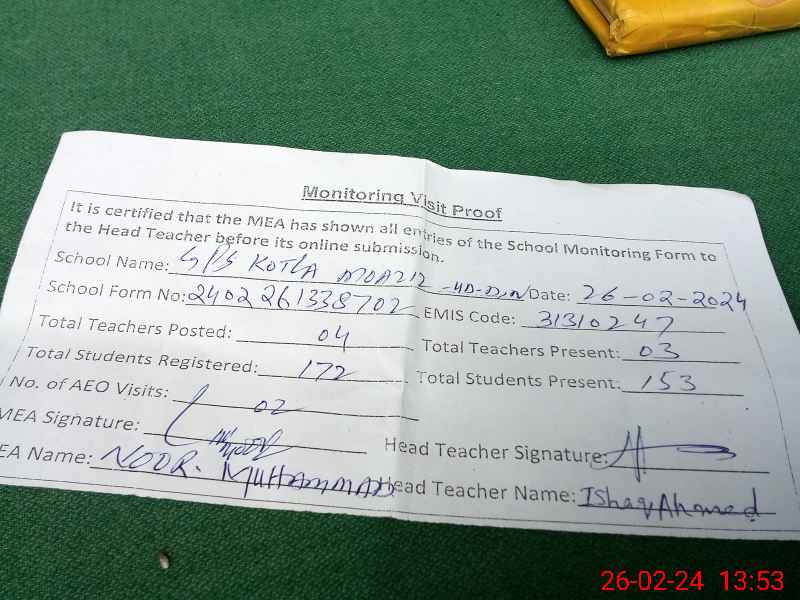 Monitoring Visit Proof
It is certified that the MEA has shown all entries of the School Monitoring Form to
the Head Teacher before its online submission.
School Name: GPS KOTLA MOAZIZ-UD-DIN Date: 26-02-2024
School Form No: 2402261338702 EMIS Code: 31310247
Total Teachers Posted: 04 Total Teachers Present: 03
Total Students Registered: 172 Total Students Present: 153
No. of AEO Visits: 02
MEA Signature: Head Teacher Signature:
EA Name: NOOR. MUHAMMAD Head Teacher Name: IShaq Ahmed
26-02-24 13:53